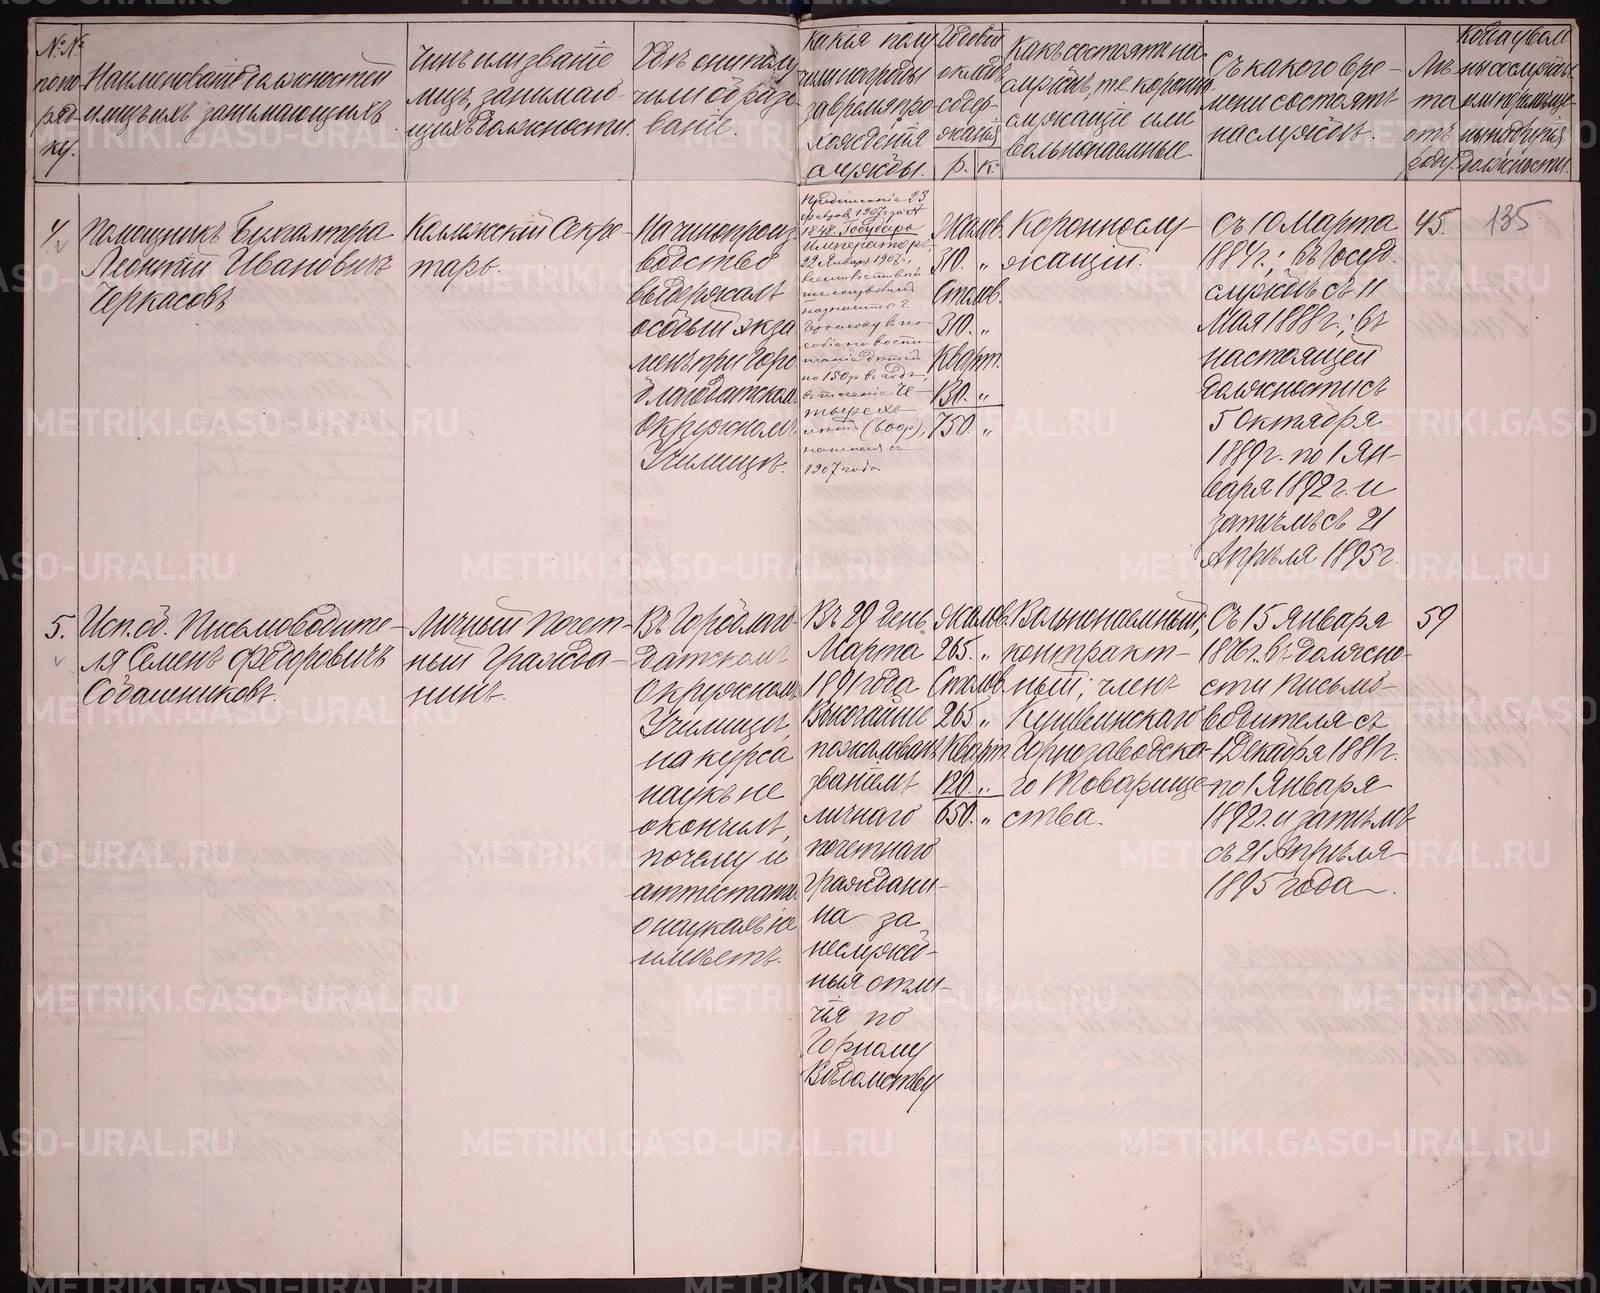 №№
по по
ряд
ку.
Наименованіе должностей
и лицъ ихъ занимающихъ.
Чинъ или званіе
лицъ, занимаю-
щихъ должности.
Гдѣ они полу
чили образо
ваніе.
Какія полу
чили награды
за время про
хожденія
службы.
Годовой
окладъ
содер
жанія
р. к.
Какъ состоятъ на
службѣ, т.е. коронно
служащіе или
вольнонаемные
Съ какого вре-
мени состоятъ
на службѣ.
Лѣ
та
отъ
роду.
Когда увол
ны со службы
или перемѣще
ны на другія
должности.
135
4.
Помощникъ Бухгалтера
Леонтій Ивановичъ
Черкасовъ
Коллежскій Секре-
тарь.
На чинопроиз
водство
выдержалъ
особый экза
менъ при Горо
благодатском
Окружномъ
Училищѣ.
Предписаніе 23
Февраля 1907 года №
1848. Государь
Императоръ,
22 Января 1907 г.,
всемилостивѣй
ше соизволилъ
назначить г.
Черкасову въ по-
собіе на воспи-
таніе дѣтей
по 150 р въ годъ,
въ теченіе че-
тырехъ
лѣтъ (600 р),
начиная съ
1907 года
Жалов.
310. „
Столов.
310. „
Кварт.
130. „
750. „
Коронно слу-
жащій.
Съ 10 Марта
1884 г.; въ Госуд.
службѣ съ 11
Мая 1888 г.; въ
настоящей
должности съ
5 Октября
1889 г. по 1 Ян-
варя 1892 г. и
затѣмъ съ 21
Апрѣля 1895 г.
45.
5.
Исп. об. Письмоводите-
ля Семенъ Ѳедоровичъ
Собашниковъ.
Личный Почет-
ный Гражда-
нинъ.
Въ Гороблаго
датскомъ
Окружномъ
Училищѣ,
но курса
наукъ не
окончилъ,
почему и
аттестата
о наукахъ не
имѣетъ.
Въ 29 день
Марта
1891 года
Высочайше
пожалованъ
званіемъ
личнаго
почетнаго
гражданина
на за
неслужеб-
ныя отли-
чія по
Горному
Вѣдомству
Жалов.
265. „
Столов.
265 „
Кварт.
120. „
650. „
Вольнонаемный,
контракт-
ный; членъ
Кушвинскаго
Горнозаводска-
го Товарище-
ства.
Съ 15 Января
1876 г. въ должно-
сти Письмо-
водителя съ
1 Декабря 1881 г.
по 1 Января
1892 г. и затѣмъ
съ 21 Апрѣля
1895 года.
59
METRIKI.GASO-URAL.RU